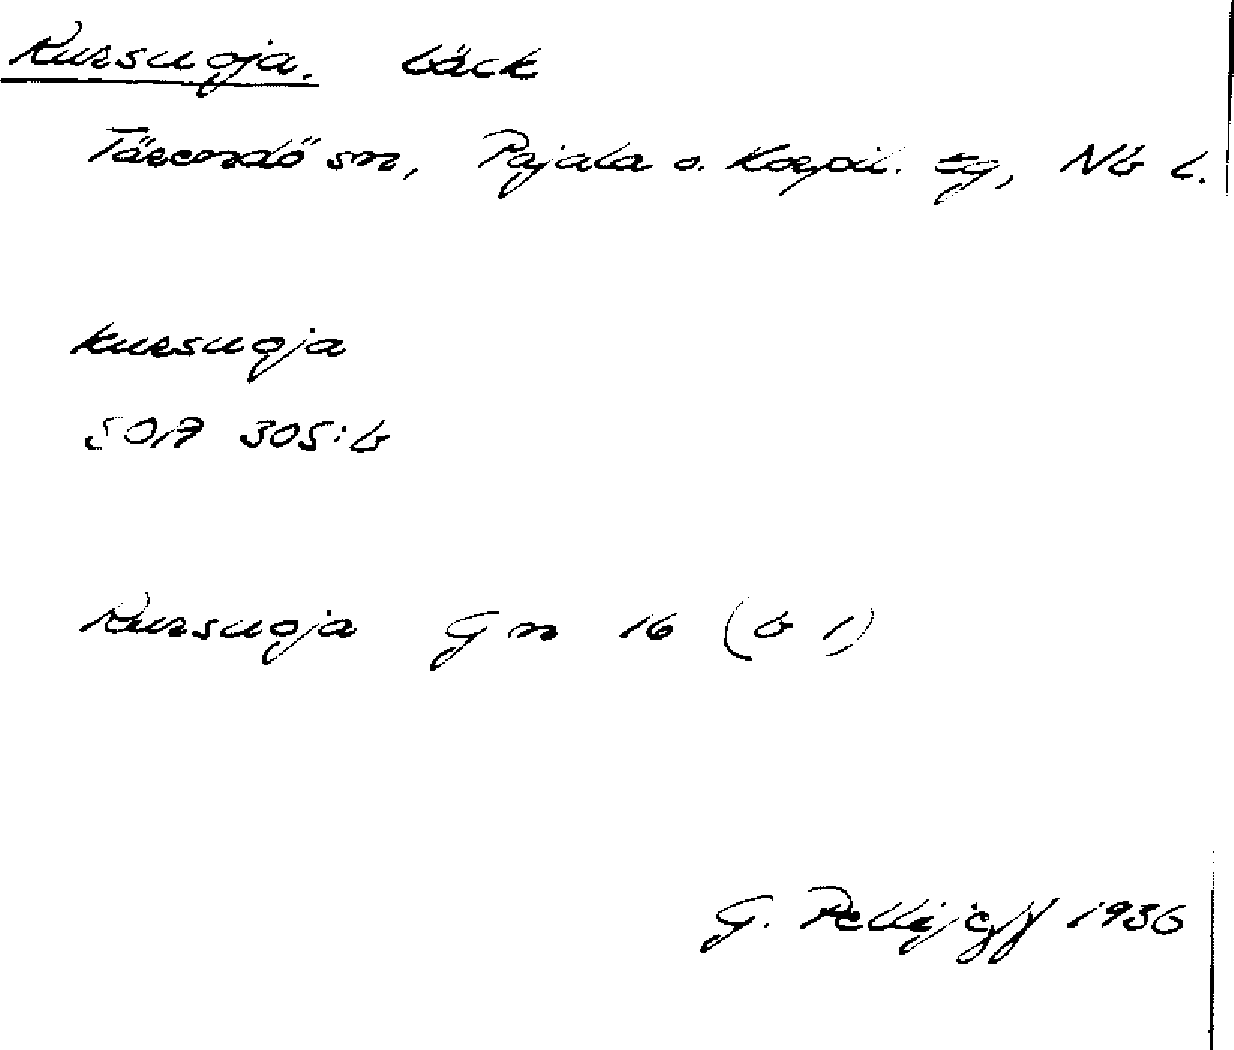 Kursuoja. bäck
Tärendö sn, Pajala o. Korpil. tg, Nb l.
kursuoja
SOA 305:6
Kursuoja Gm 16 (b 1)
G. Pellijeff 1936